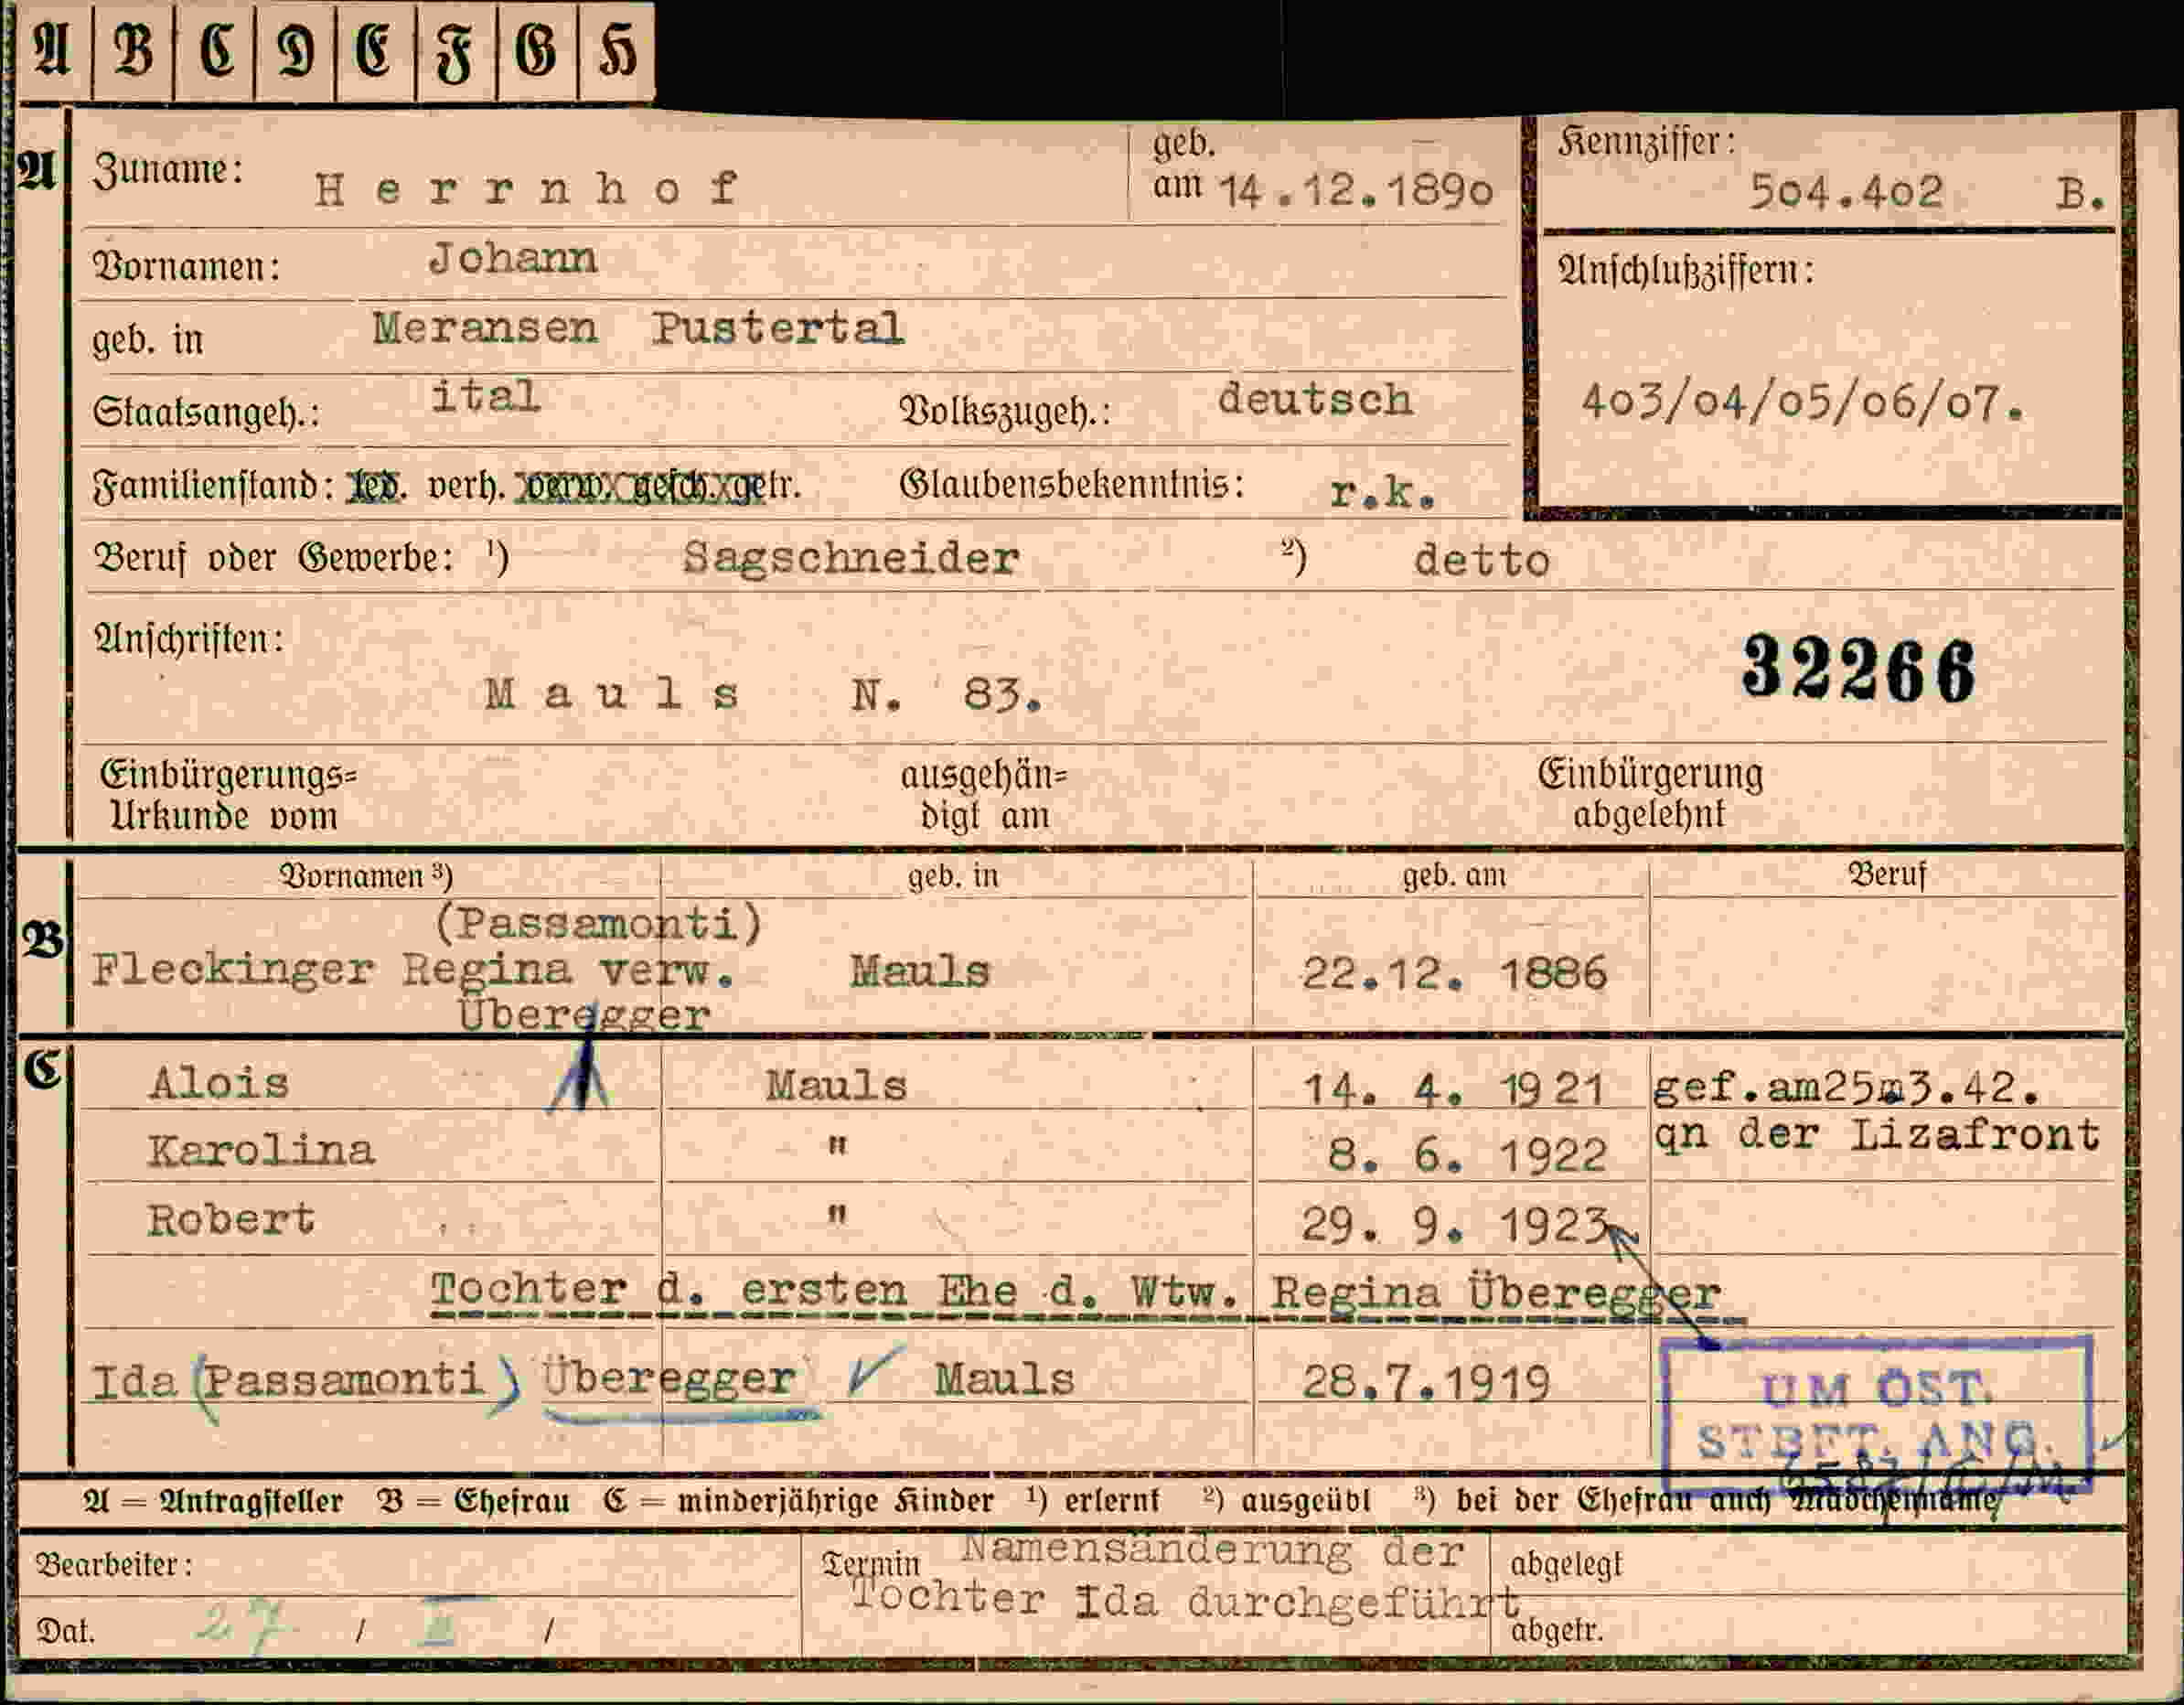 A B C D E F G H
A Zuname: Herrnhof geb. am 14.12.1890 Kennziffer: 504.402 B.
Vornamen: Johann Anschlußziffern:
geb. in Meransen Pustertal
Staatsangeh.: ital Volkszugeh.: deutsch 403/04/05/06/07.
Familienstand: led. verh. verw. gesch. getr. Glaubensbekenntnis: r.k.
Beruf oder Gewerbe: ¹) Sagschneider ²) detto
Anschriften: 32266
Mauls N. 83.
Einbürgerungs= ausgehän= Einbürgerung
Urkunde vom digt am abgelehnt
Vornamen ³) geb. in geb. am Beruf
(Passamonti)
B Fleckinger Regina verw. Mauls 22.12. 1886
Überegger
C Alois Mauls 14. 4. 1921 gef.am25m3.42.
Karolina " 8. 6. 1922 qn der Lizafront
Robert " 29. 9. 1923
Tochter d. ersten Ehe d. Wtw. Regina Überegger
Ida (Passamonti) Überegger Mauls 28.7.1919
UM ÖST.
STBFT. ANG.
A = Antragsteller B = Ehefrau C = minderjährige Kinder ¹) erlernt ²) ausgeübt ³) bei der Ehefrau auch Mädchenname
Bearbeiter: Termin Namensänderung der abgelegt
Tochter Ida durchgeführt
Dat. 27 / II / abgetr.